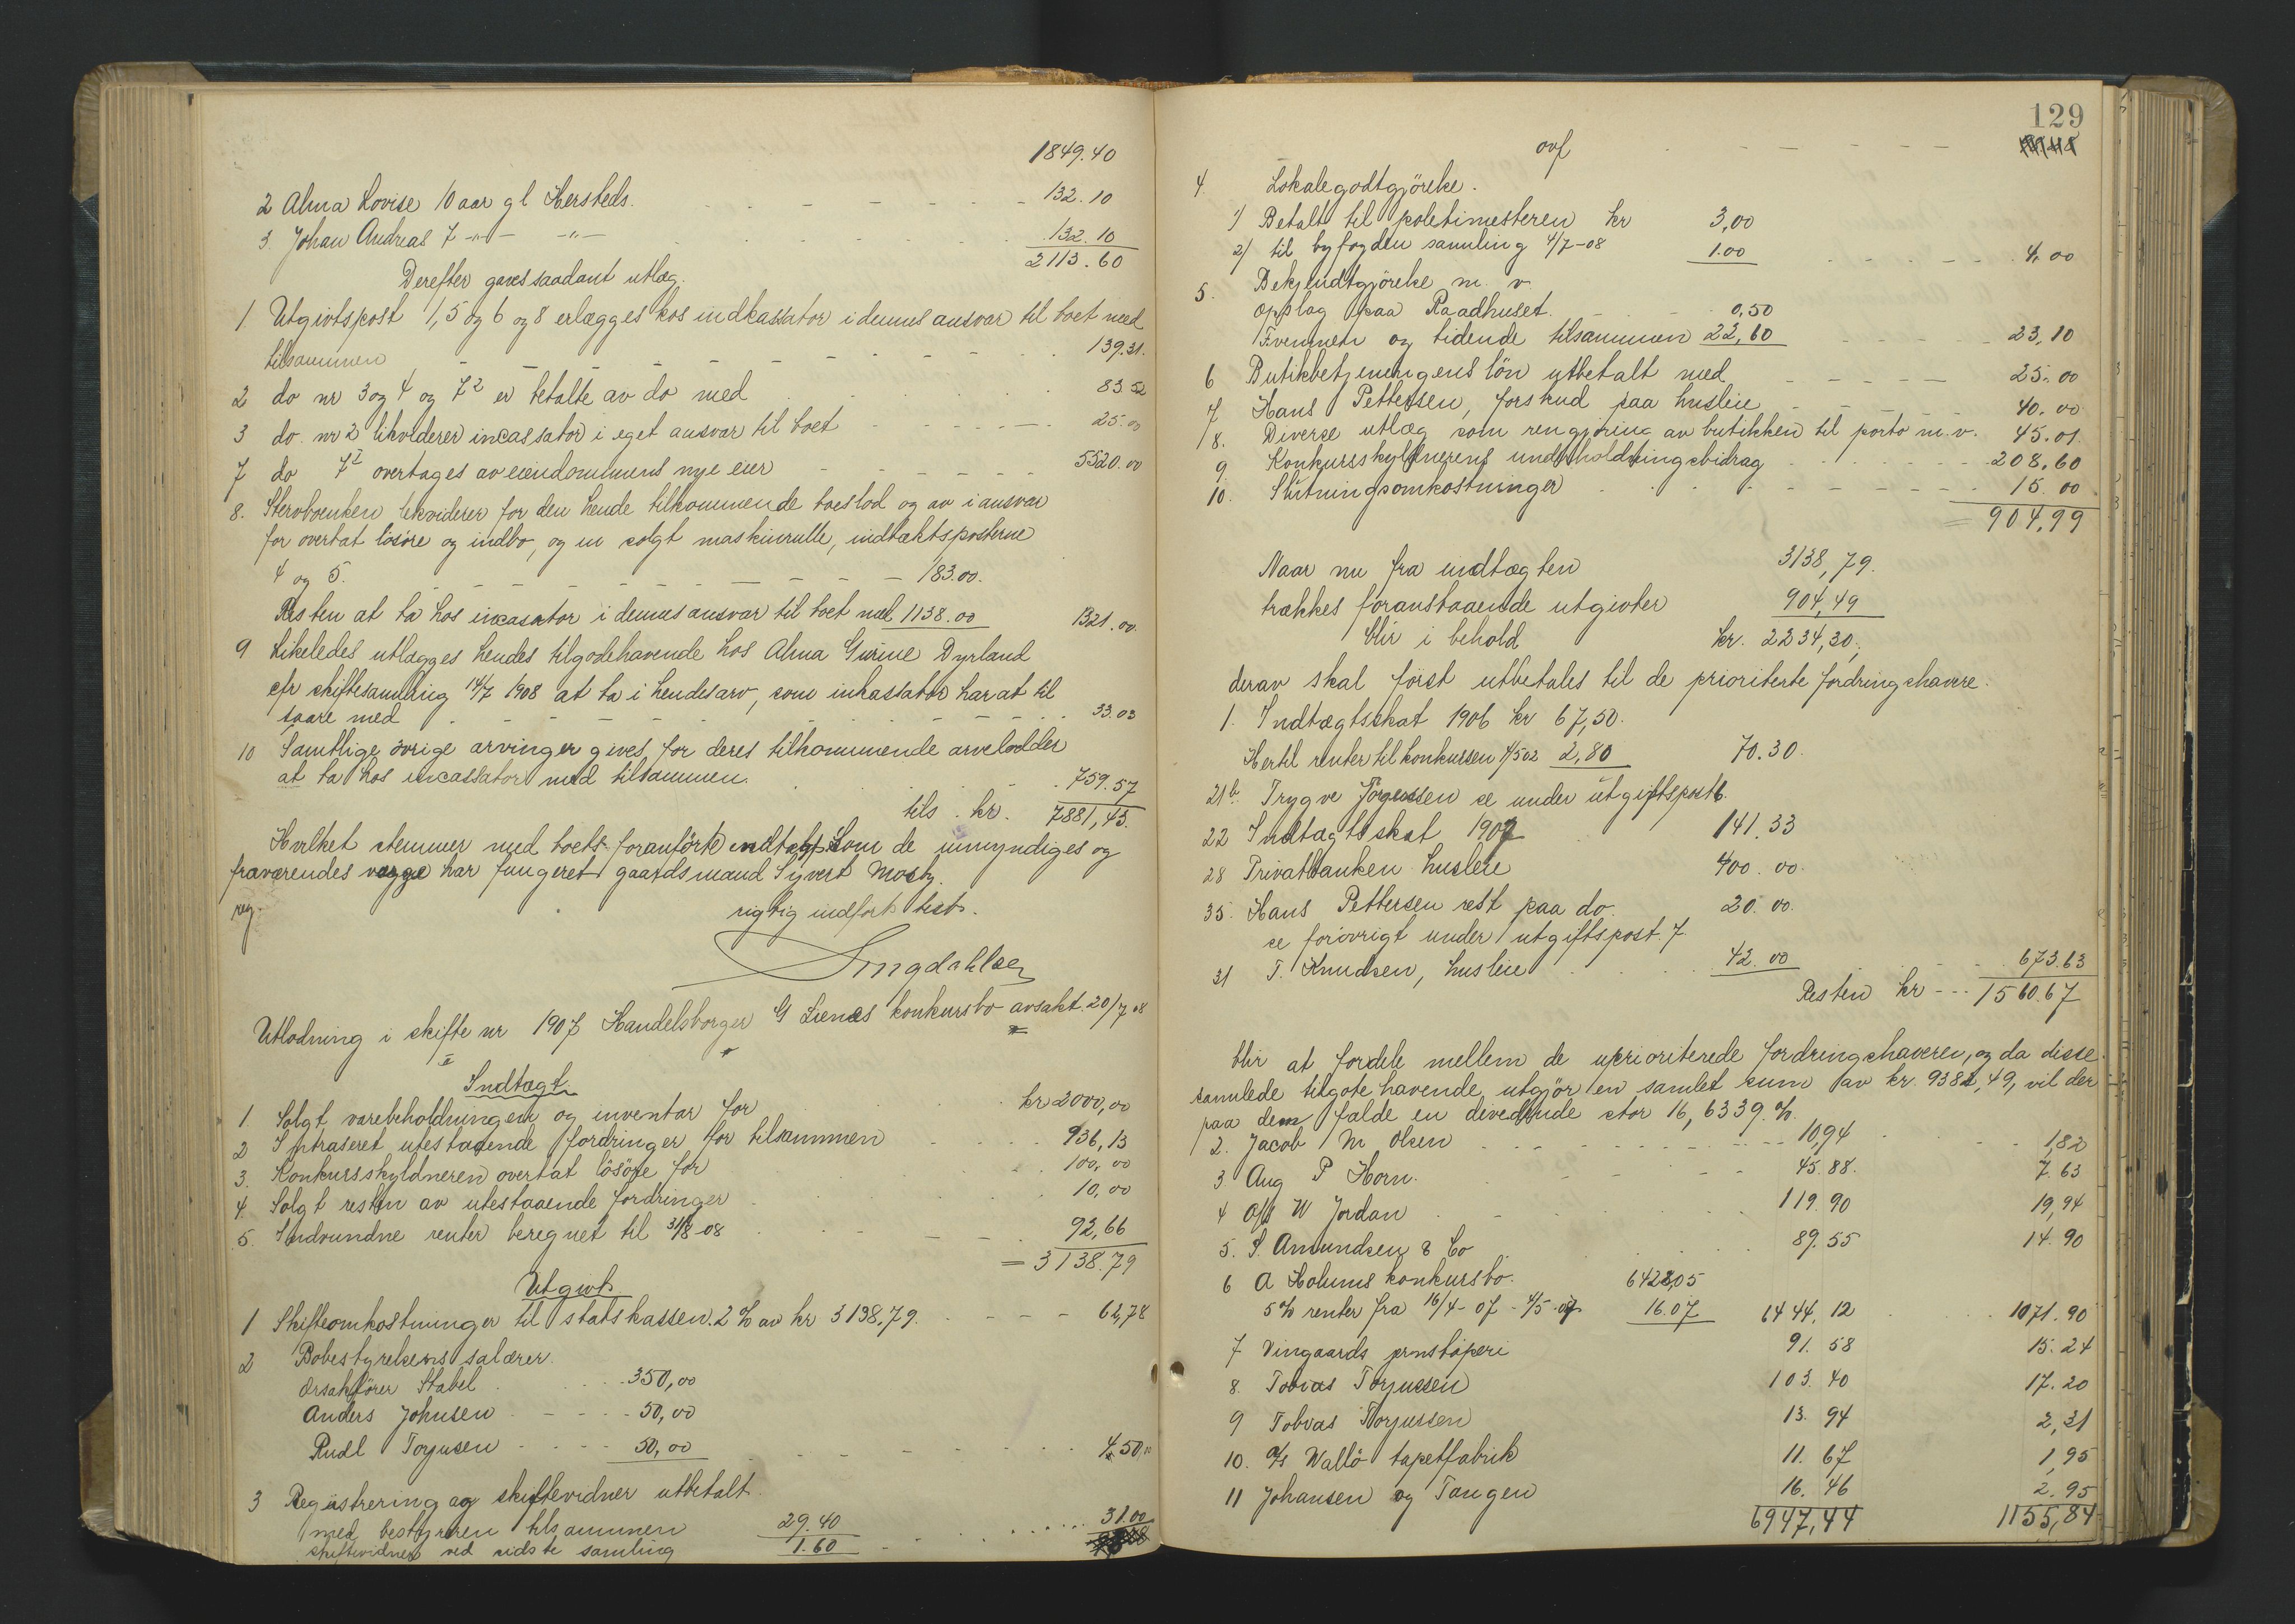 1849.40
2 Alma Lovise 10 aar gl Hersteds. 132.10
3. Johan Andreas 7 -"- -"- 132.10
2113.60
Derefter gaves saadant utlæg.
1 Utgivtspost 1, 5 og 6 og 8 erlægges hos indkassator i dennes ansvar til boet med
tilsammen 139.31.
2 do nr 3 og 4 og 7² er betalte av do med 83 52
3 do. nr 2 likviderer incassator i eget ansvar til boet 25.00
7 do 7¹ overtages av eiendommens nye eier 5520.00
8. Stervboenken likviderer for den hende tilkommende boeslod og av i ansvar
for overtat lösöre og indbo, og en solgt maskinrulle, indtæktsposterne
4 og 5. 183.00.
Resten at ta hos incasator i dennes ansvar til boet med 1138.00 1321.00.
9 Likeledes utlægges hendes tilgodehavende hos Alma Gurine Dyrland
cfr skiftesamling 14/7 1908 at ta i hendes arv, som inkassator har at til
svare med 33.03
10 Samtlige övrige arvinger gives for deres tilkommende arvelodder
at ta hos incassator med tilsammen. 759.57
tils. kr. 7881,43.
Hvilket stemmer med boets foranförte indtægt. Som de umyndiges og
fraværendes værge har fungeret gaardsmand Syvert Mosby.
reg. rigtig indfört test.
Utlodning i skifte nr 1907 Handelsborger G Lienes konkursbo avsakt. 20/7 08
Indtægt
1. Solgt varebeholdningen og inventar for kr 2000,00
2 Inkasseret utestaaende fordringer for tilsammen 936,13
3. Konkursskyldneren overtat lösöre for 100,00
4. Solgt resten av utestaaende fordringer 10,00
5. Indvundne renter beregnet til 31/8-08 92,66
= 3138.79
Utgivt
1 Skifteomkostninger til statskassen. 2 % av kr 3138,79. 62,78
2 Bobestyrelsens salærer.
Orsakförer Stabel 350,00
Anders Johnsen 50,00
Rudl Torjusen 50,00 450,00
3 Registrering og skiftevidner utbetalt.
med bestyreren tilsammen 29.40
skiftevidner ved sidste samling 1.60 31.00
129
ovf
4. Lokalegodtgjörelse.
1) Betalt til politimesteren kr 3,00
2) til byfogden samling 4/7-08 1.00 4.00
5. Bekjendtgjörelse m. v.
opslag paa Raadhuset. 0,50
Fvennen og tidende tilsammen 22,60 23,10
6 Butikbetjeningens lön utbetalt med 25.00
7 Hans Pettersen, forskud paa husleie 40.00
8. Diverse utlæg som rengjöring av butikken til porto m. v. 45.01
9 Konkursskyldnerens underholdningsbidrag 208.60
10. Slutningsomkostninger 15.00
= 904,99
Naar nu fra indtægten 3138,79.
trækkes foranstaaende utgivter 904,49
blir i behold kr. 2234,30,
derav skal först utbetales til de prioriterte fordringshavere.
1. Indtægtsskat 1906 kr 67,50.
Hertil renter til konkursen 4/5 02 2,80 70.30.
21b. Trygve Jörgensen se under utgiftspost 6.
22 Indtægtsskat 1907 141.33
28 Privatbanken husleie 400.00.
35. Hans Pettersen rest paa do. 20.00.
se forövrigt under utgiftspost. 7.
31 T. Knudsen, husleie 42.00 673.63
Resten kr 1560.67
blir at fordele mellem de uprioriterede fordringshavere, og da disse
samlede tilgotehavende utgjör en samlet sum av kr. 9382,49, vil der
paa dem falde en devedende stor 16,6339 %.
2. Jacob M Olsen 10,94 1,82
3 Aug P Horn. 45.88. 7.63
4 A/S W Jordan 119.90 19,94
5. S. Amundsen & Co 89.55 14.90
6 A Holums konkursbo. 6428,05
5 % renter fra 16/4-07 - 4/5-07 16.07 6444,12 1071.90
7 Vingaards jernstöperi 91.58 15.24
8. Tobias Torjussen 103.40 17.20
9 Tobias Torjussen 13.94 2,31
10. A/s Wallö tapetfabrik 11.67 1,95
11 Johansen og Tangen 16.46 2.95
6947,44 1155,84